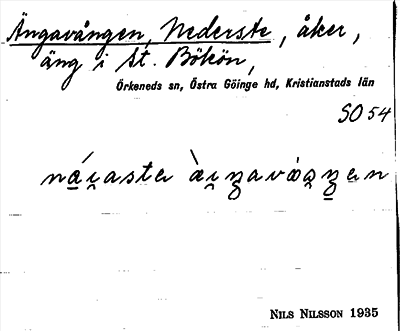 Ängavången, Nederste, åker,
äng i St. Bökön,
Örkeneds sn, Östra Göinge hd, Kristianstads län
SO 54
NILS NILSSON 1935